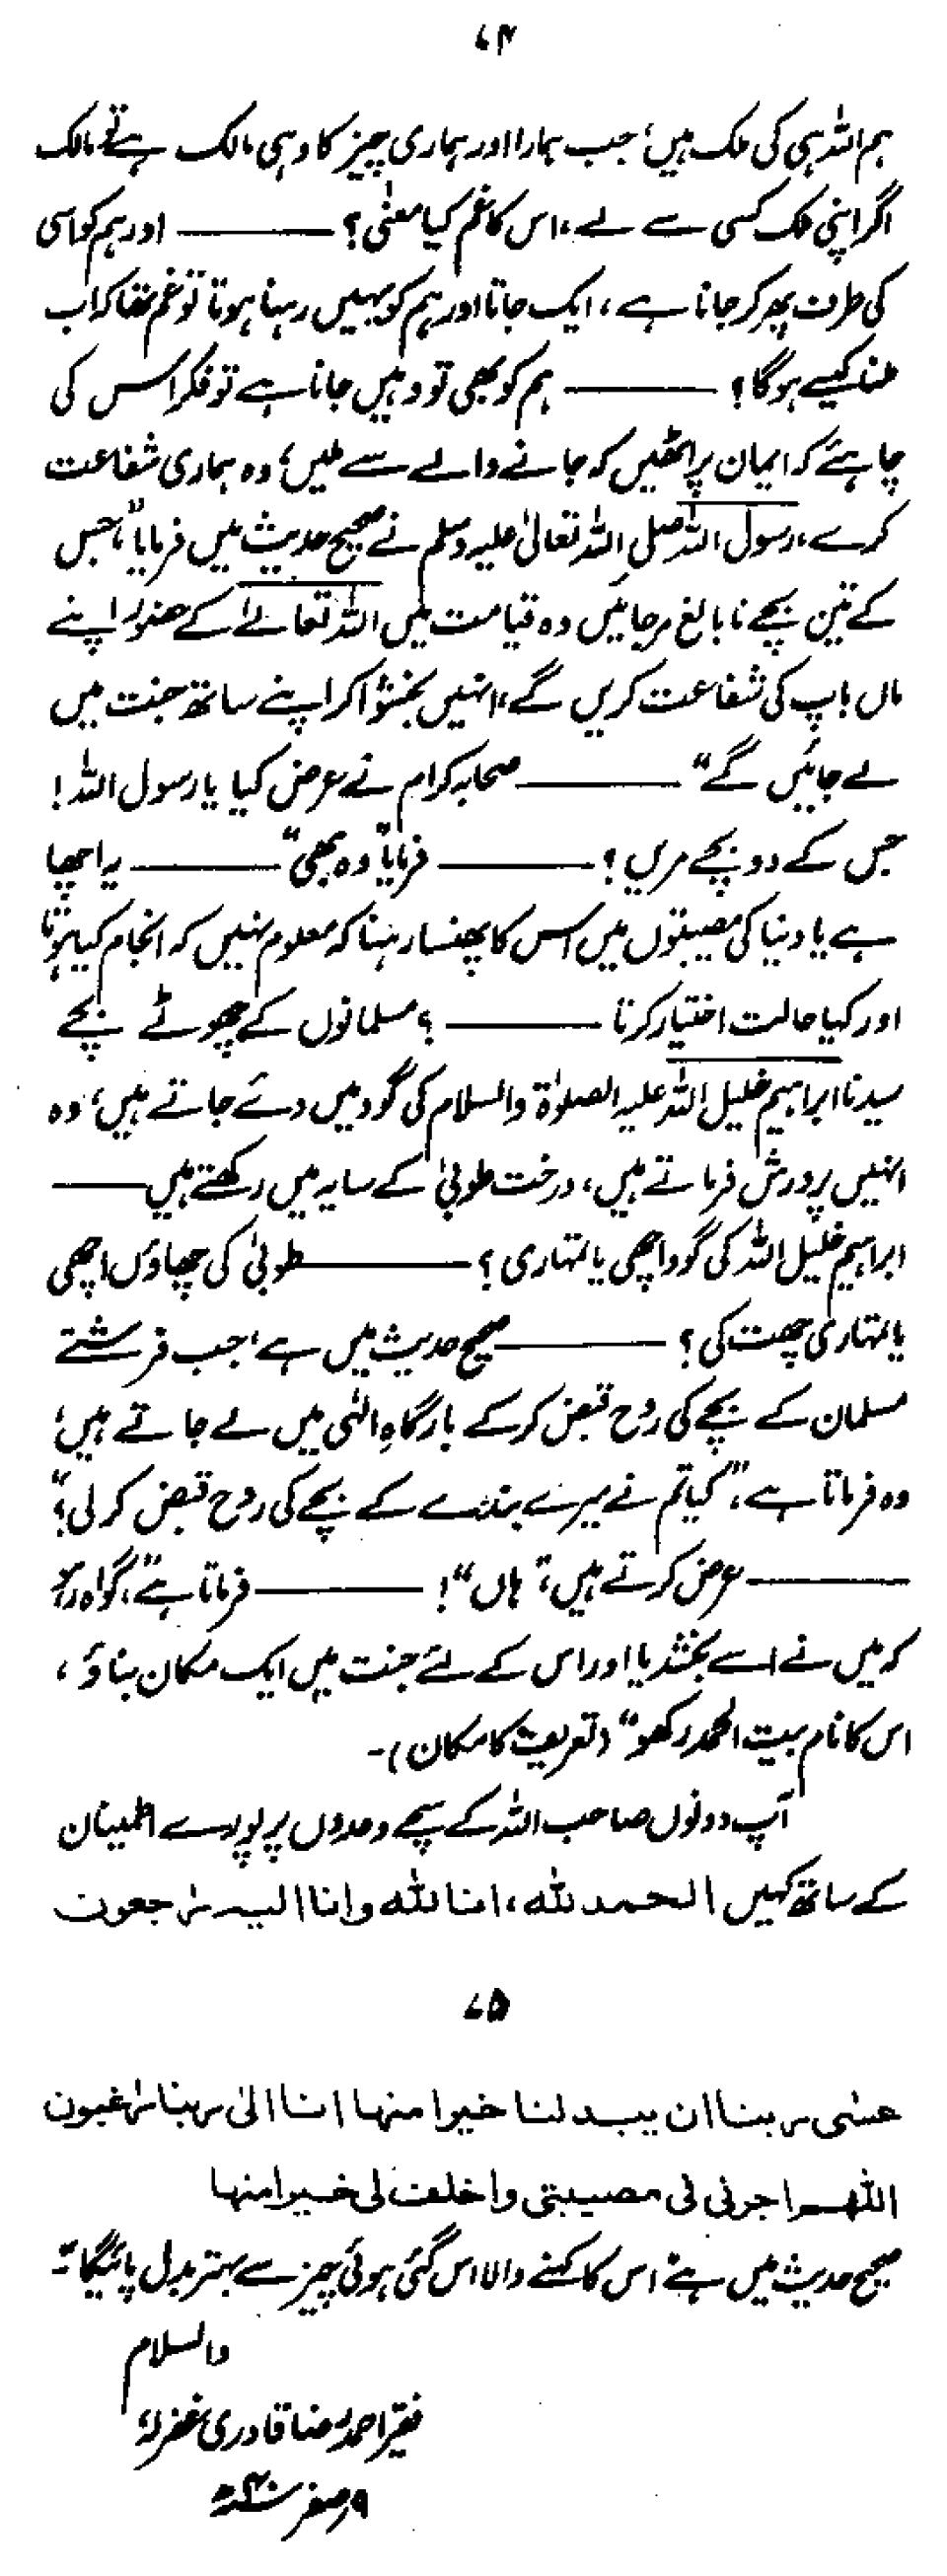 ۷۴
ہم اللہ ہی کی ملک ہیں؛ جب ہمارا اور ہماری چیز کا وہی مالک ہے تو مالک
اگر اپنی ملک کسی سے لے، اس کا غم کیا معنٰی؟ ——— اور ہم کو اسی
کی طرف پھر کر جانا ہے، ایک جاتا اور ہم کو یہیں رہنا ہوتا تو غم تھا کہ اب
ملنا کیسے ہوگا؟ ——— ہم کو بھی تو وہیں جانا ہے تو فکر اس کی
چاہئے کہ ایمان پر اٹھیں کہ جانے والے سے ملیں؛ وہ ہماری شفاعت
کرے، رسول اللہ صلی اللہ تعالیٰ علیہ وسلم نے صحیح حدیث میں فرمایا "جس
کے تین بچے نابالغ مرجائیں وہ قیامت میں اللہ تعالےٰ کے حضور اپنے
ماں باپ کی شفاعت کریں گے، انہیں بخشوا کر اپنے ساتھ جنت میں
لے جائیں گے" ——— صحابہ کرام نے عرض کیا یا رسول اللہ!
جس کے دو بچے مریں؟ ——— فرمایا "وہ بھی" ——— یہ اچھا
ہے یا دنیا کی مصیبتوں میں اس کا پھنسا رہنا کہ معلوم نہیں کہ انجام کیا ہوتا
اور کیا حالت اختیار کرتا ——— ؟ مسلمانوں کے چھوٹے بچے
سیدنا ابراہیم خلیل اللہ علیہ الصلوٰۃ والسلام کی گود میں دئے جاتے ہیں؛ وہ
انہیں پرورش فرماتے ہیں، درخت طوبیٰ کے سایہ میں رکھتے ہیں ———
ابراہیم خلیل اللہ کی گود اچھی یا تمہاری؟ ——— طوبیٰ کی چھاؤں اچھی
یا تمہاری چھت کی؟ ——— صحیح حدیث میں ہے، جب فرشتے
مسلمان کے بچے کی روح قبض کرکے بارگاہِ الٰہی میں لے جاتے ہیں؛
وہ فرماتا ہے، "کیا تم نے میرے بندے کے بچے کی روح قبض کرلی؟"
——— عرض کرتے ہیں، "ہاں"! ——— فرماتا ہے، "گواہ رہو
کہ میں نے اسے بخشدیا اور اس کے لئے جنت میں ایک مکان بناؤ،
اس کا نام بیت الحمد رکھو" (تعریف کا مکان)۔
آپ دونوں صاحب اللہ کے سچے وعدوں پر پورے اطمینان
کے ساتھ کہیں الحمد للہ، انا للہ وانا الیہ راجعون
۷۵
عسٰی ربنا ان یبدلنا خیرا منہا انا الیٰ ربنا راغبون
اللھم اجرنی فی مصیبتی واخلف لی خیرا منہا
صحیح حدیث میں ہے؛ اس کا کہنے والا اس گئی ہوئی چیز سے بہتر بدل پائیگا۔
والسلام
فقیر احمد رضا قادری غفرلہٗ
۹ر صفر ۴۰ھ